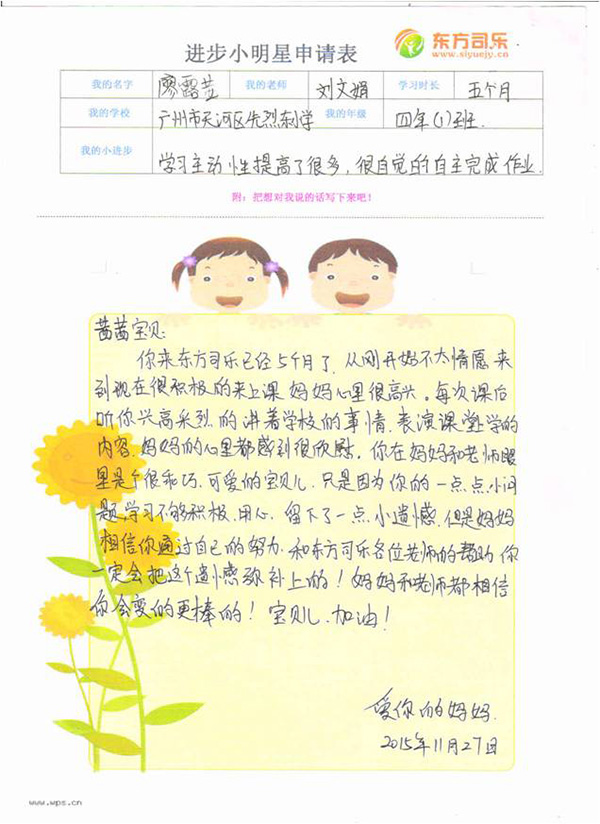 东方司乐
www.siyuejy.cn
进步小明星申请表
我的名字 廖露茜 我的老师 刘文娟 学习时长 五个月
我的学校 广州市天河区先烈东小学 我的年级 四年(1)班.
我的小进步 学习主动性提高了很多,很自觉的自主完成作业.
附:把想对我说的话写下来吧!
茜茜宝贝:
你来东方司乐已经5个月了,从刚开始不太情愿来
到现在很积极的来上课,妈妈心里很高兴。每次课后
听你兴高采烈的讲着学校的事情,表演课堂上学的
内容,妈妈的心里都感到很欣慰.你在妈妈和老师眼
里是个很乖巧.可爱的宝贝儿.只是因为你的一点点小问
题,学习不够积极.用心.留下了一点小遗憾.但是妈妈
相信你通过自己的努力.和东方司乐各位老师的帮助.你
一定会把这个遗憾弥补上的!妈妈和老师都相信
你会变的更棒的!宝贝儿.加油!
爱你的妈妈.
2015年11月27日
www.wps.cn